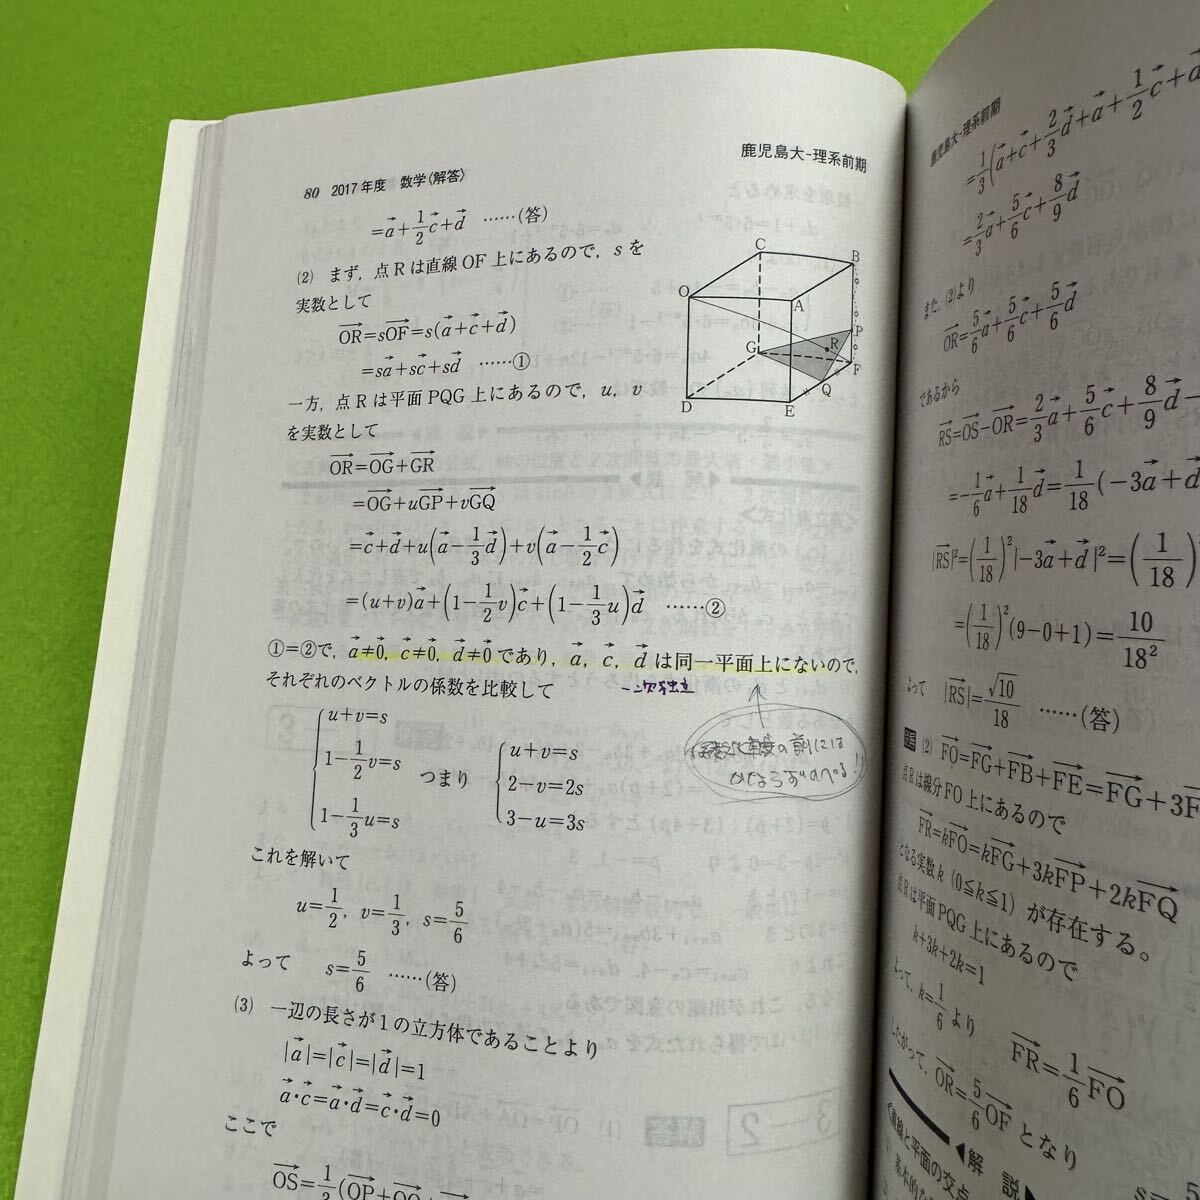 80 2017年度 数学〈解答〉
鹿児島大-理系前期
=a⃗+1/2c⃗+d⃗ ……(答)
(2) まず,点Rは直線OF上にあるので,sを
実数として
OR⃗=sOF⃗=s(a⃗+c⃗+d⃗)
=sa⃗+sc⃗+sd⃗ ……①
一方,点Rは平面PQG上にあるので,u,v
を実数として
OR⃗=OG⃗+GR⃗
=OG⃗+uGP⃗+vGQ⃗
=c⃗+d⃗+u(a⃗-1/3d⃗)+v(a⃗-1/2c⃗)
=(u+v)a⃗+(1-1/2v)c⃗+(1-1/3u)d⃗ ……②
C
B
O
A
P
R
G
F
Q
D
E
①=②で,a⃗≠0⃗,c⃗≠0⃗,d⃗≠0⃗であり,a⃗,c⃗,d⃗は同一平面上にないので,
それぞれのベクトルの係数を比較して
一次独立
u+v=s
1-1/2v=s
1-1/3u=s
つまり
u+v=s
2-v=2s
3-u=3s
係数比較の前には
必ずのべる!!
これを解いて
u=1/2,v=1/3,s=5/6
よって s=5/6 ……(答)
(3) 一辺の長さが1の立方体であることより
|a⃗|=|c⃗|=|d⃗|=1
a⃗・c⃗=a⃗・d⃗=c⃗・d⃗=0
ここで
鹿児島大-理系前期
=1/3(a⃗+c⃗+2/3d⃗+a⃗+1/2c⃗+d⃗
=2/3a⃗+5/6c⃗+8/9d⃗
また,(2)より
OR⃗=5/6a⃗+5/6c⃗+5/6d⃗
であるから
RS⃗=OS⃗-OR⃗=2/3a⃗+5/6c⃗+8/9d⃗-
=-1/6a⃗+1/18d⃗=1/18(-3a⃗+d⃗
|RS⃗|²=(1/18)²|-3a⃗+d⃗|²=(1/18)
=(1/18)²(9-0+1)=10/18²
よって |RS⃗|=√10/18 ……(答)
(2) FO⃗=FG⃗+FB⃗+FE⃗=FG⃗+3F
点Rは線分FO上にあるので
FR⃗=kFO⃗=kFG⃗+3kFP⃗+2kFQ⃗
となる実数k (0≦k≦1) が存在する。
点Rは平面PQG上にあるので
k+3k+2k=1
よって,k=1/6より FR⃗=1/6FO⃗
したがって,OR⃗=5/6OF⃗となり
◀解 説▶